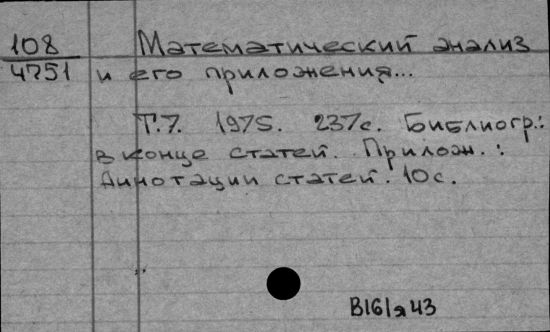 108 Математический анализ
4751 и его приложения...
Т.7. 1975. 237с. Библиогр.:
в конце статей. Прилож.:
Аннотации статей. 10с.
В161я43